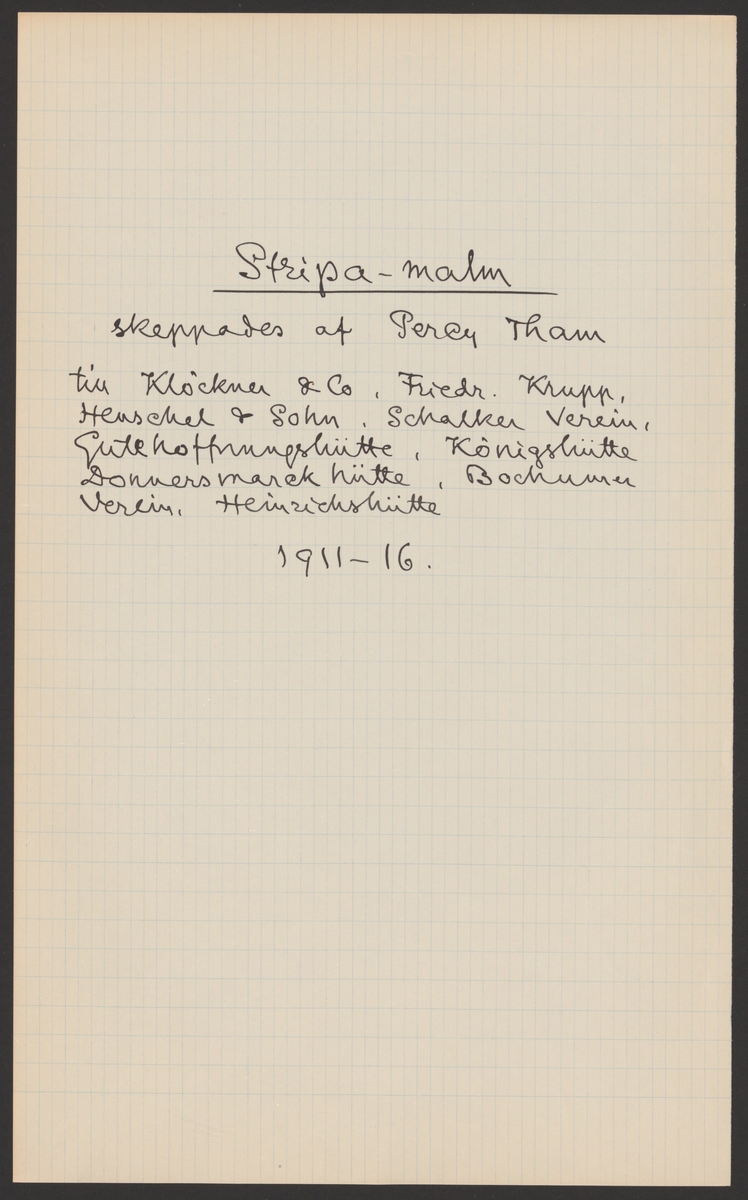 Stripa-malm
skeppades af Percy Tham
till Klöckner & Co, Friedr. Krupp,
Henschel & Sohn, Schalker Verein,
Gutehoffnungshütte, Königshütte
Donnersmarckhütte, Bochumer
Verein, Heinrichshütte
1911-16.